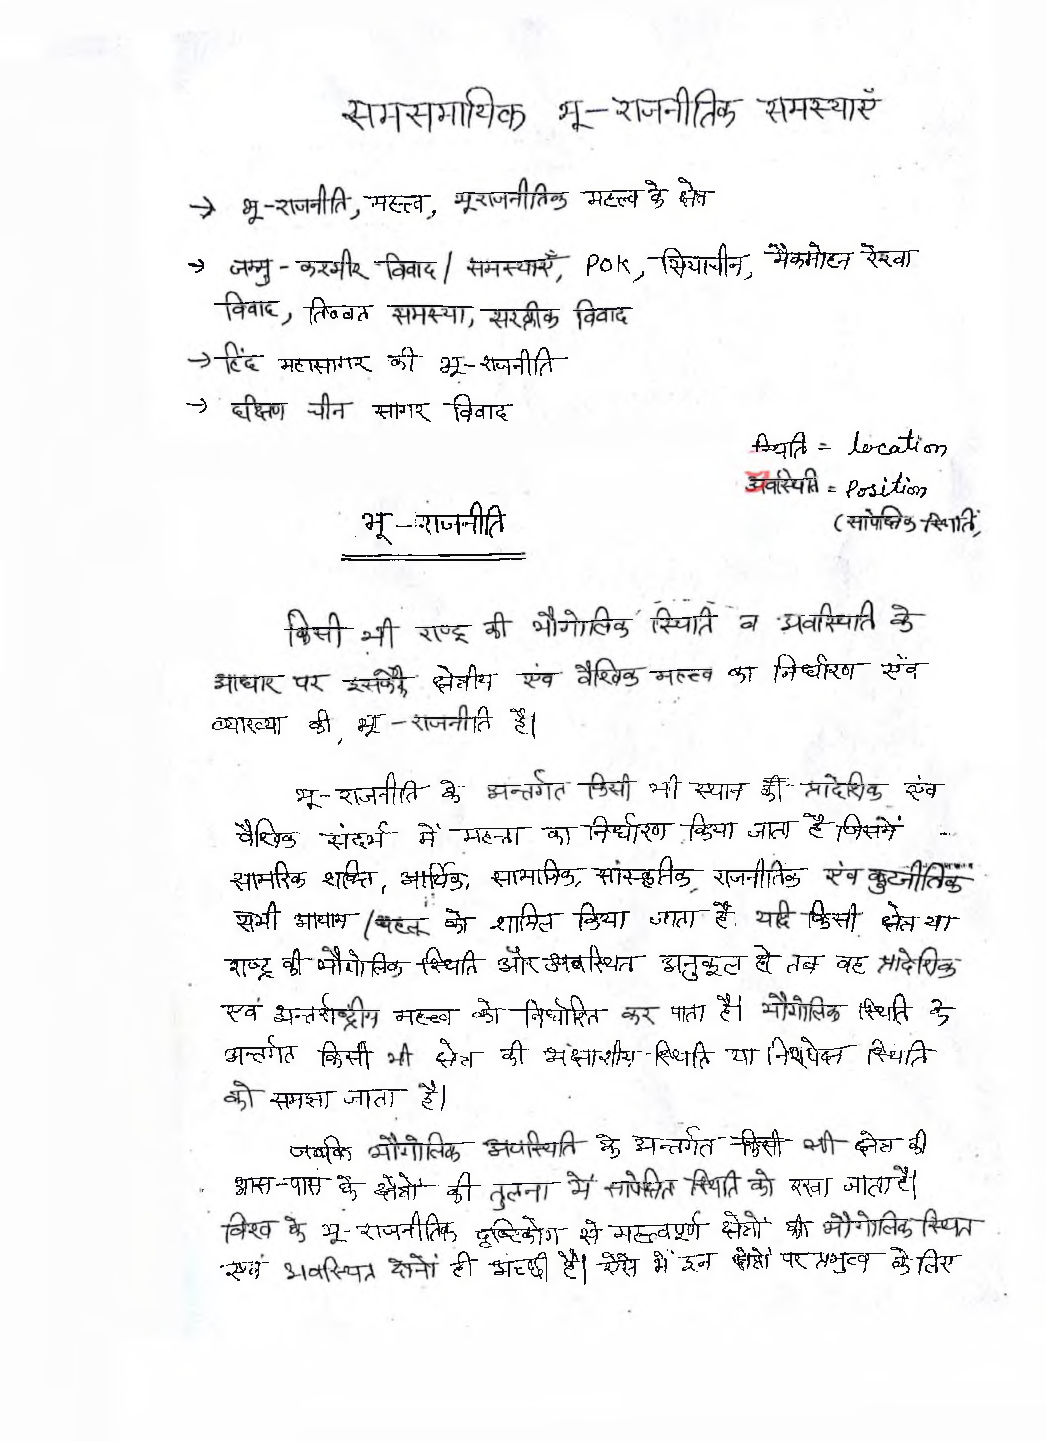 समसमायिक भू-राजनीतिक समस्याएँ
→ भू-राजनीति, महत्त्व, भूराजनीतिक महत्त्व के क्षेत्र
→ जम्मु-कश्मीर विवाद/समस्याएँ, POK, सियाचीन, मैकमोहन रेखा
विवाद, तिब्बत समस्या, सरक्रीक विवाद
→ हिंद महासागर की भू-राजनीति
→ दक्षिण चीन सागर विवाद
स्थिति = location
अवस्थिति = Position
(सापेक्षिक स्थिति)
भू-राजनीति
किसी भी राष्ट्र की भौगोलिक स्थिति व अवस्थिति के
आधार पर इसके क्षेत्रीय एंव वैश्विक महत्त्व का निर्धारण एंव
व्याख्या की भू-राजनीति है।
भू-राजनीति के अन्तर्गत किसी भी स्थान की प्रादेशिक एंव
वैश्विक संदर्भ में महत्ता का निर्धारण किया जाता है जिसमें
सामरिक शक्ति, आर्थिक, सामाजिक, सांस्कृतिक, राजनीतिक एंव कुटनीतिक
सभी आयाम / पहलू को शामिल किया जाता है. यदि किसी क्षेत्र या
राष्ट्र की भौगोलिक स्थिति और अवस्थित अनुकूल हो तब वह प्रादेशिक
एवं अन्तर्राष्ट्रीय महत्त्व को निर्धारित कर पाता है। भौगोलिक स्थिति के
अन्तर्गत किसी भी क्षेत्र की अंक्षाशीय स्थिति या निरपेक्ष स्थिति
को समझा जाता है।
जबकि भौगोलिक अवस्थिति के अन्तर्गत किसी भी क्षेत्र की
आस-पास के क्षेत्रों की तुलना में सापेक्षित स्थिति को रखा जाता है।
विश्व के भू-राजनीतिक दृष्टिकोण से महत्त्वपूर्ण क्षेत्रों की भौगोलिक स्थित
एवं अवस्थित दोनों ही अच्छी है। ऐसे में इन क्षेत्रों पर प्रभुत्व के लिए